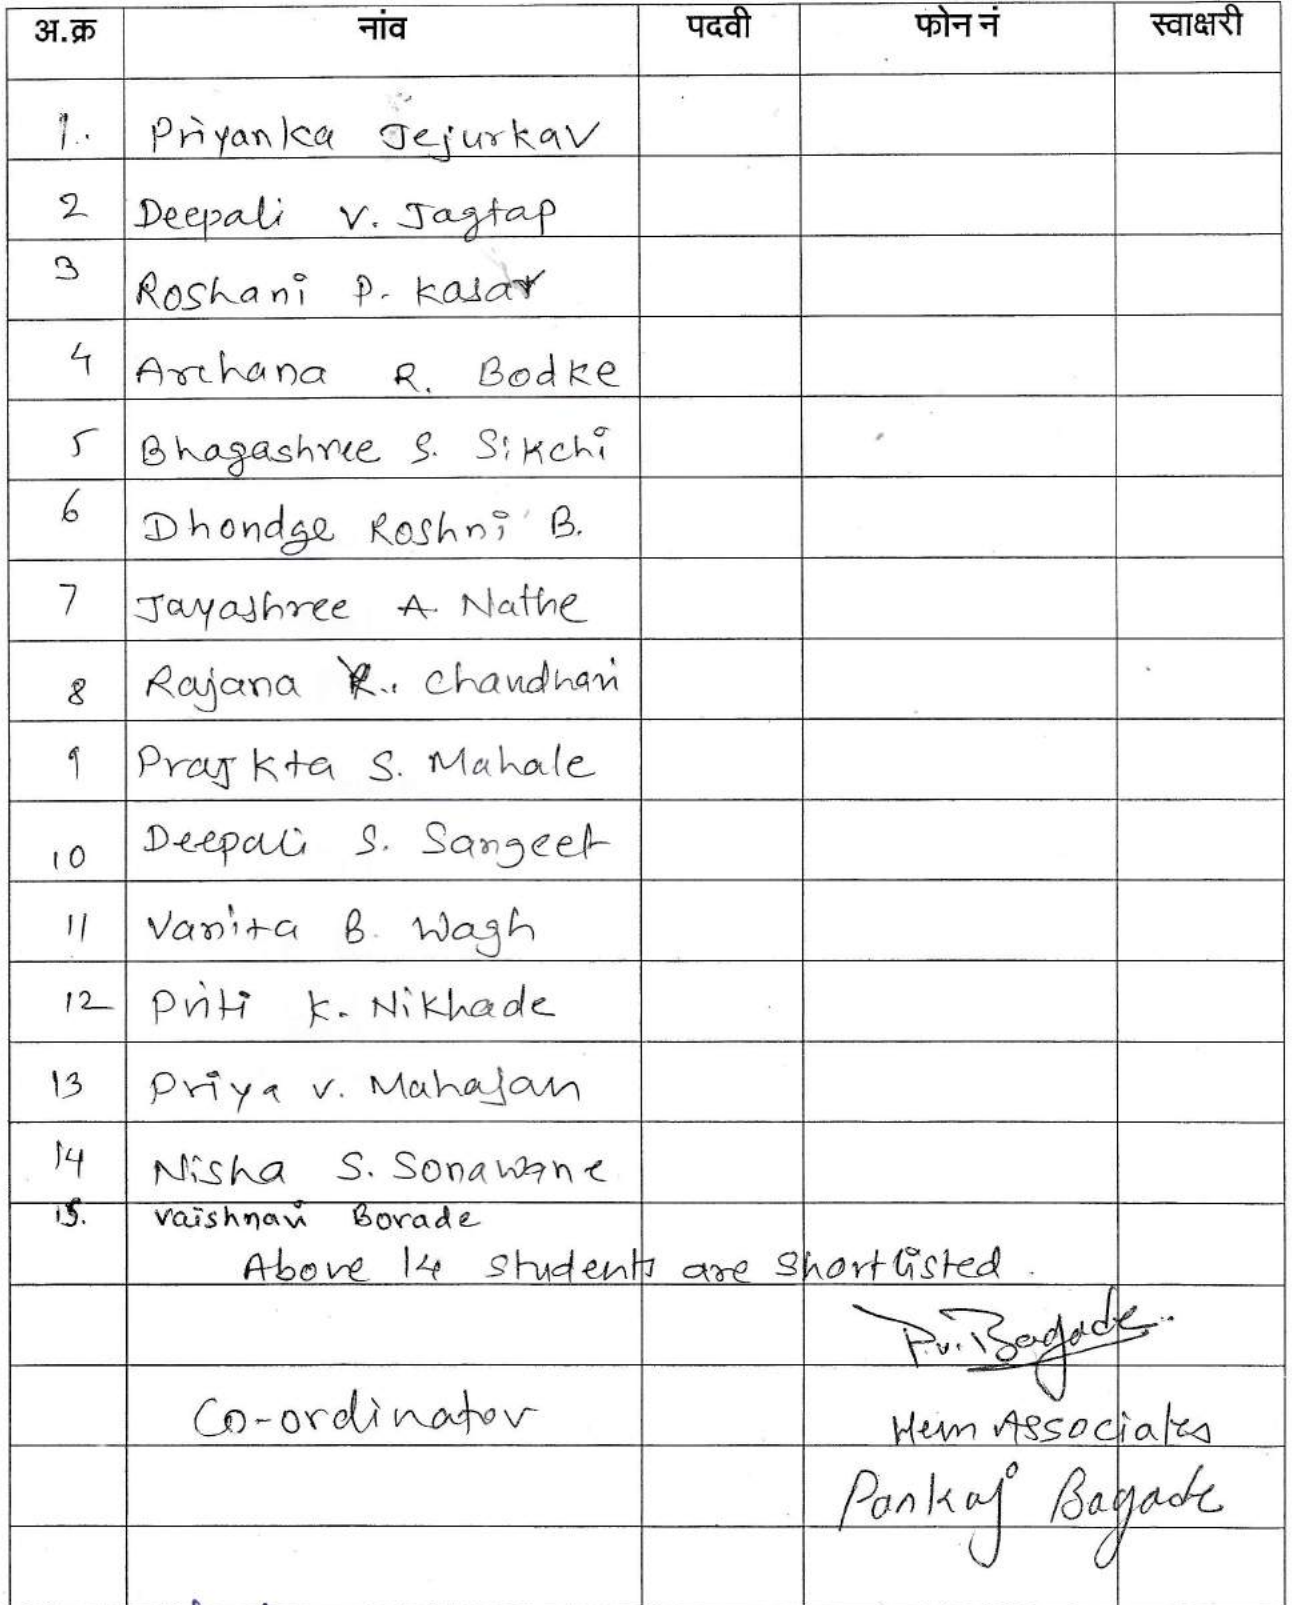 अ.क्र नांव पदवी फोन नं स्वाक्षरी
1. Priyanka Jejurkar
2 Deepali V. Jagtap
3 Roshani P. Kasar
4 Archana R. Bodke
5 Bhagashree S. Sikchi
6 Dhondge Roshni B.
7 Jayashree A. Nathe
8 Rajana R. Chaudhari
9 Prajkta S. Mahale
10 Deepali S. Sangeet
11 Vanita B. Wagh
12 Priti K. Nikhade
13 Priya V. Mahajan
14 Nisha S. Sonawane
15. Vaishnavi Borade
Above 14 students are shortlisted.
P.V. Bagade
Co-ordinator Hem Associates
Pankaj Bagade